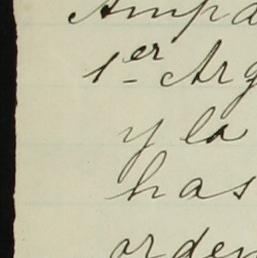 Ampa
1er Arg
y la
has
orden